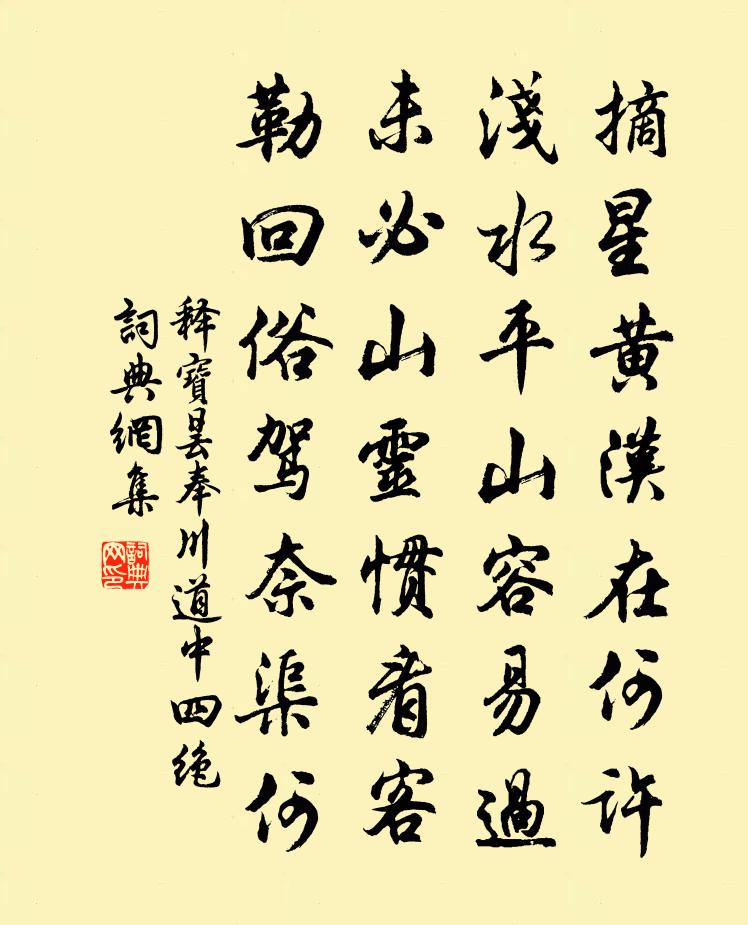 摘星黄漢在何許
淺水平山容易過
未必山靈慣看客
勒回俗駕奈渠何
釋寶曇奉川道中四絶
詞典網集
詞典网印